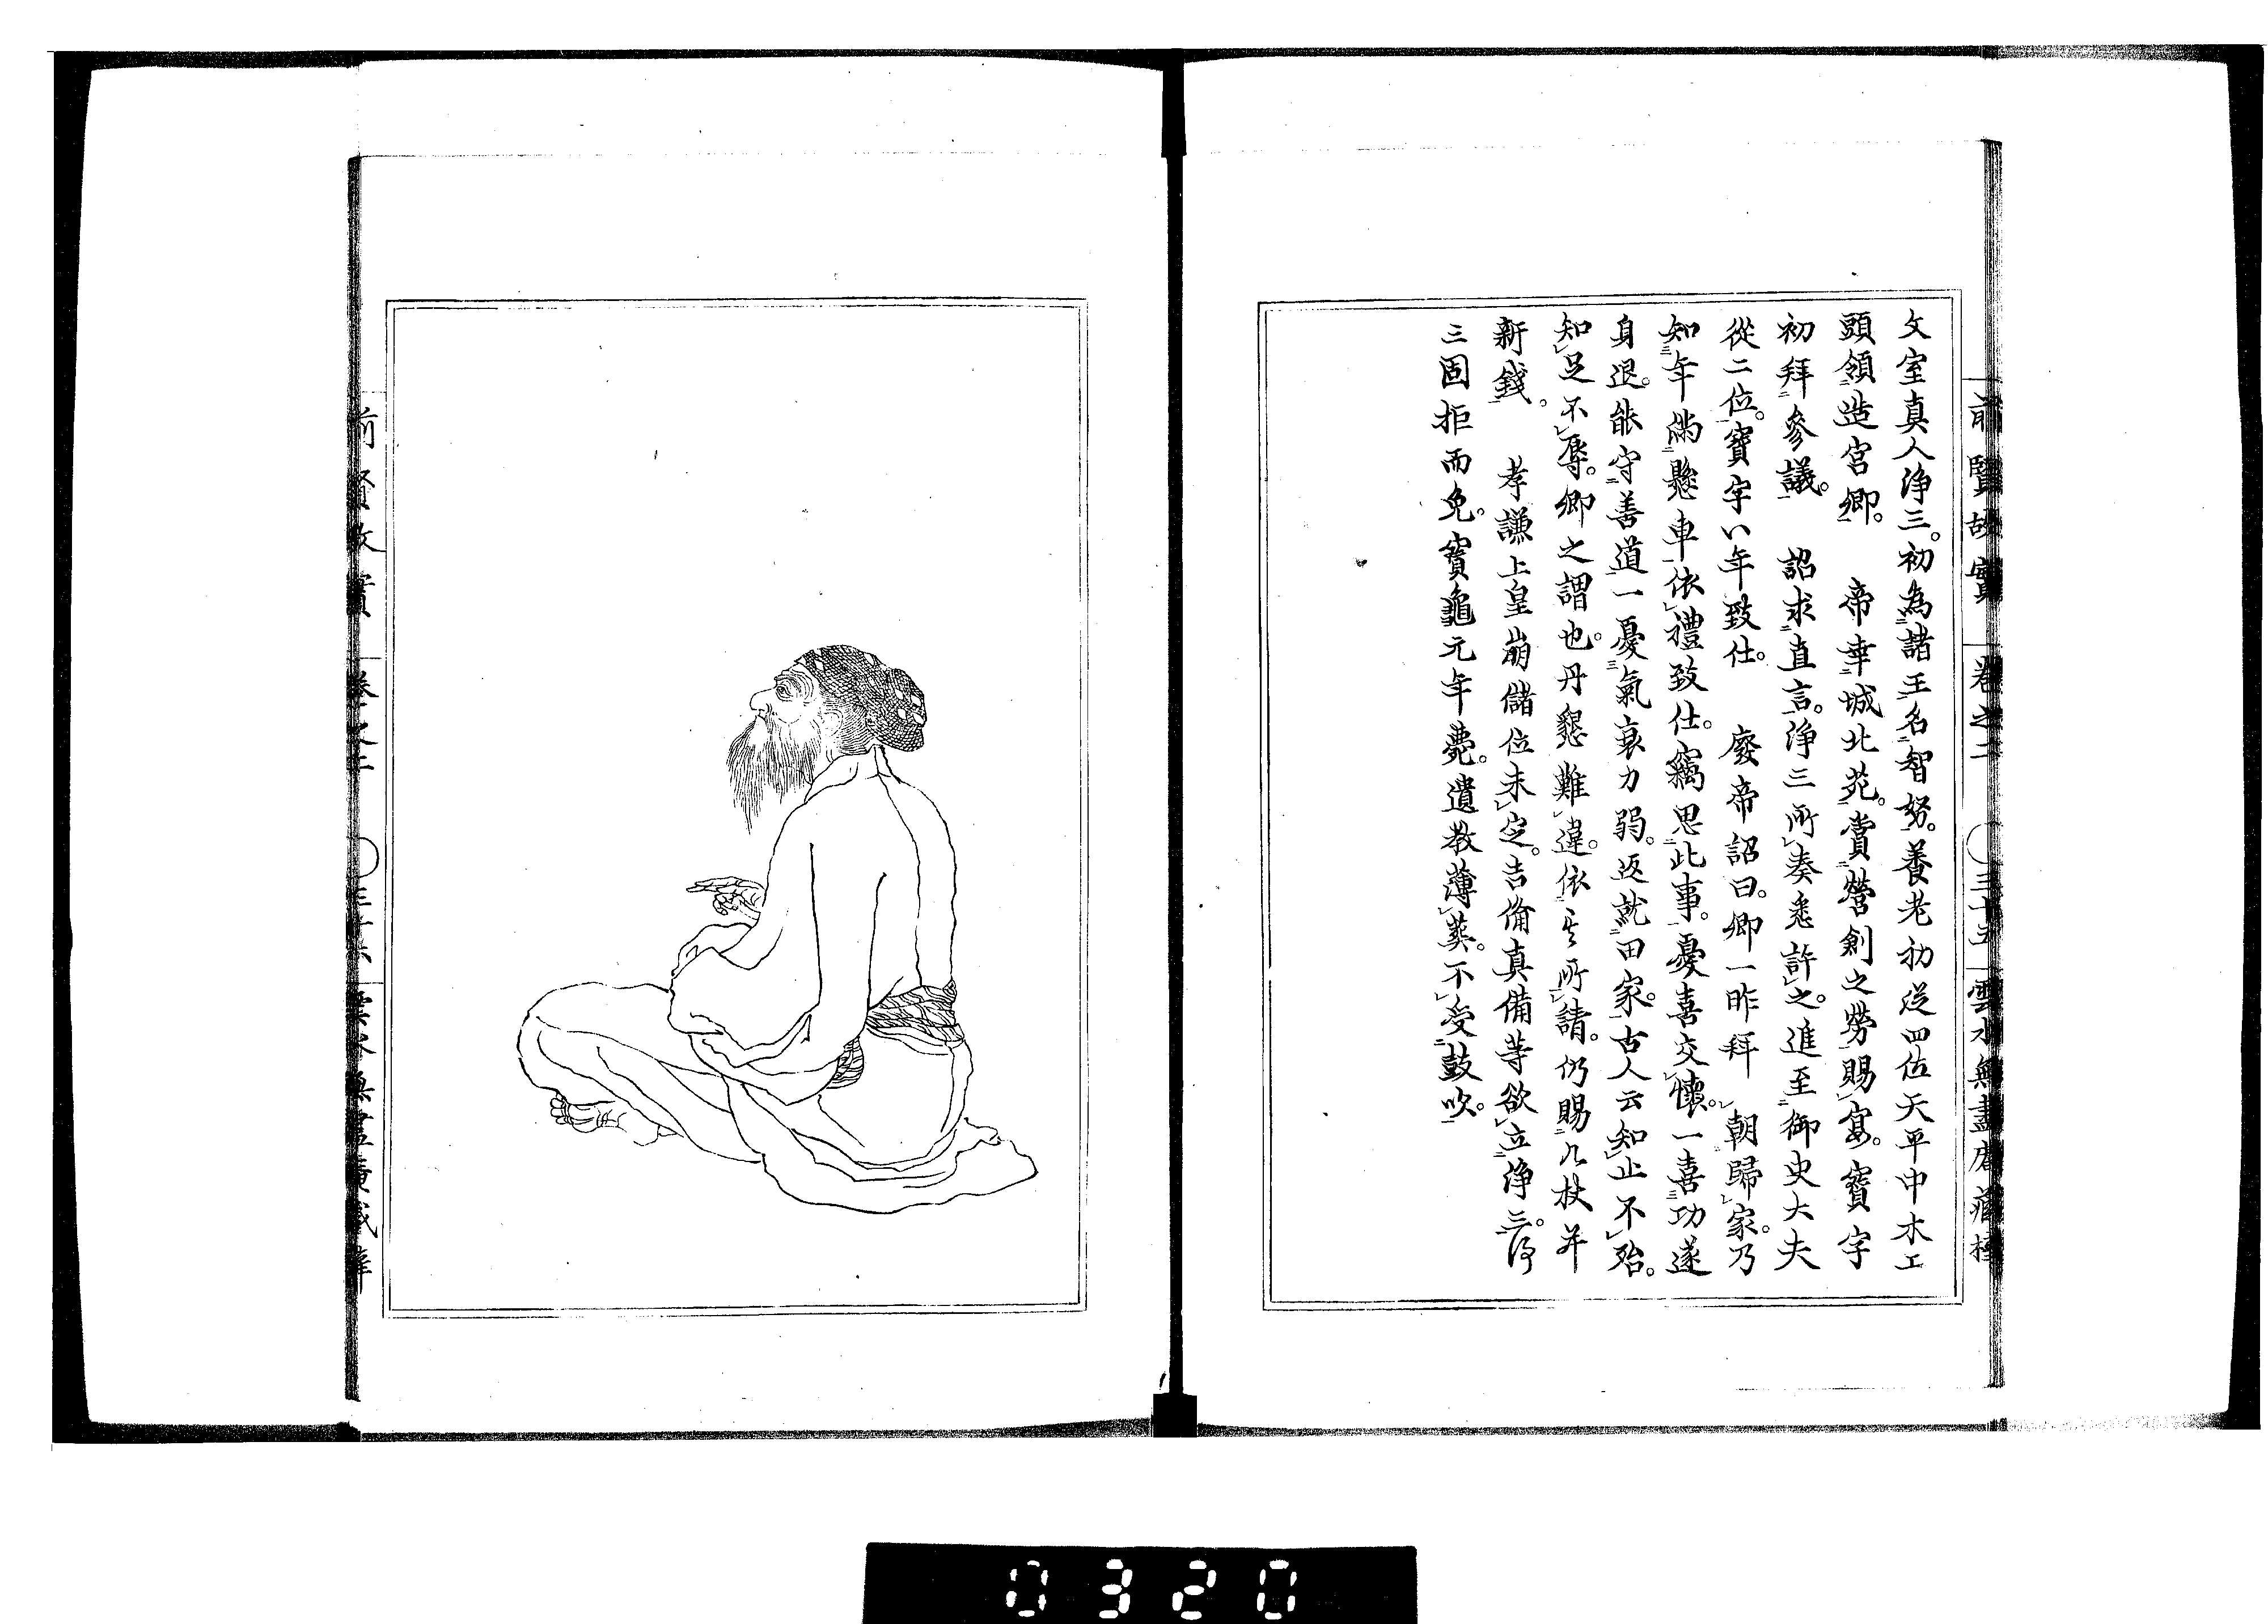 前賢故實 卷之二 三十五 雲水無盡庵藏梓
文室真人浄三。初為諸王名智努。養老初從四位天平中木工
頭領造宮卿。 帝幸城北苑。賞營創之勞賜宴。寶字
初拜參議。 詔求直言。浄三所奏悉許之。進至御史大夫
從二位。寶字八年致仕。 廢帝詔曰。卿一昨拜 朝歸家。乃
知年滿懸車依禮致仕。竊思此事。憂喜交懷。一喜功遂
身退。能守善道一憂氣衰力弱。返就田家。古人云知止不殆。
知足不辱。卿之謂也。丹懇難違。依其所請。仍賜几杖并
新錢。 孝謙上皇崩儲位未定。吉備真備等欲立浄三。浄
三固拒而免。寶龜元年薨。遺教薄葬。不受鼓吹。
前賢故實 卷之二 三十六 雲水無盡庵藏梓
0320